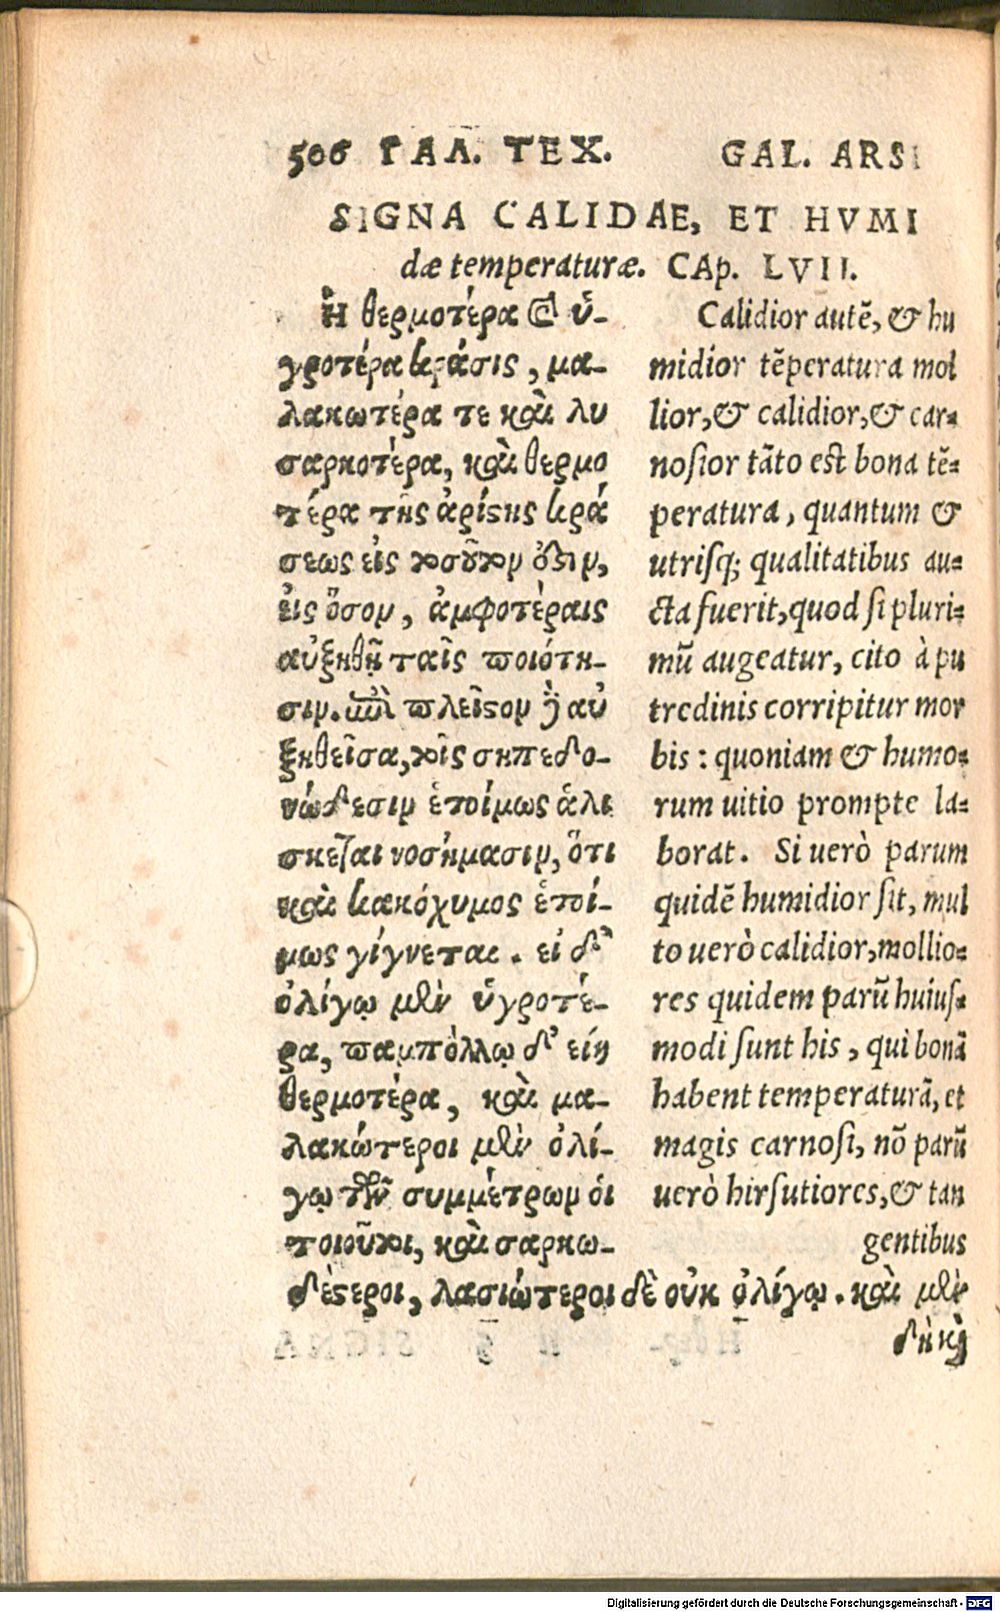 506 ΓΑΛ. ΤΕΧ. GAL. ARS
SIGNA CALIDAE, ET HVMI
dæ temperaturæ. CAp. LVII.
Ἡ θερμοτέρα καὶ ὑ-
γροτέρα κράσις, μα-
λακωτέρα τε καὶ λυ
σαρκοτέρα, καὶ θερμο
τέρα τῆς ἀρίστης κρά
σεως εἰς τοσοῦτον ὅϛιν,
εἰς ὅσον, ἀμφοτέραις
αὐξηθῇ ταῖς ποιότη-
σιν. ἐπὶ πλεῖστον δὲ αὐ
ξηθεῖσα, τοῖς σηπεδο-
νώδεσιν ἑτοίμως ἁλι
σκεται νοσήμασιν, ὅτι
καὶ κακόχυμος ἑτοί-
μως γίγνεται. εἰ δ'
ὀλίγῳ μὲν ὑγροτέ-
ρα, παμπόλλῳ δ' εἴη
θερμοτέρα, καὶ μα-
λακώτεροι μὲν ὀλί-
γῳ τῶν συμμέτρων οἱ
τοιοῦτοι, καὶ σαρκω-
δέστεροι, λασιώτεροι δὲ οὐκ ὀλίγῳ. καὶ μὲν
δὴ καὶ
Calidior autē, & hu
midior tēperatura mol
lior, & calidior, & car-
nosior tāto est bona tē-
peratura, quantum &
utrisq; qualitatibus au-
cta fuerit, quod si pluri-
mū augeatur, cito à pu
tredinis corripitur mor
bis : quoniam & humo-
rum uitio prompte la-
borat. Si uerò parum
quidē humidior sit, mul
to uerò calidior, mollio-
res quidem parū huius-
modi sunt his, qui bonā
habent temperaturā, et
magis carnosi, nō parū
uerò hirsutiores, & tan
gentibus
Digitalisierung gefördert durch die Deutsche Forschungsgemeinschaft - DFG